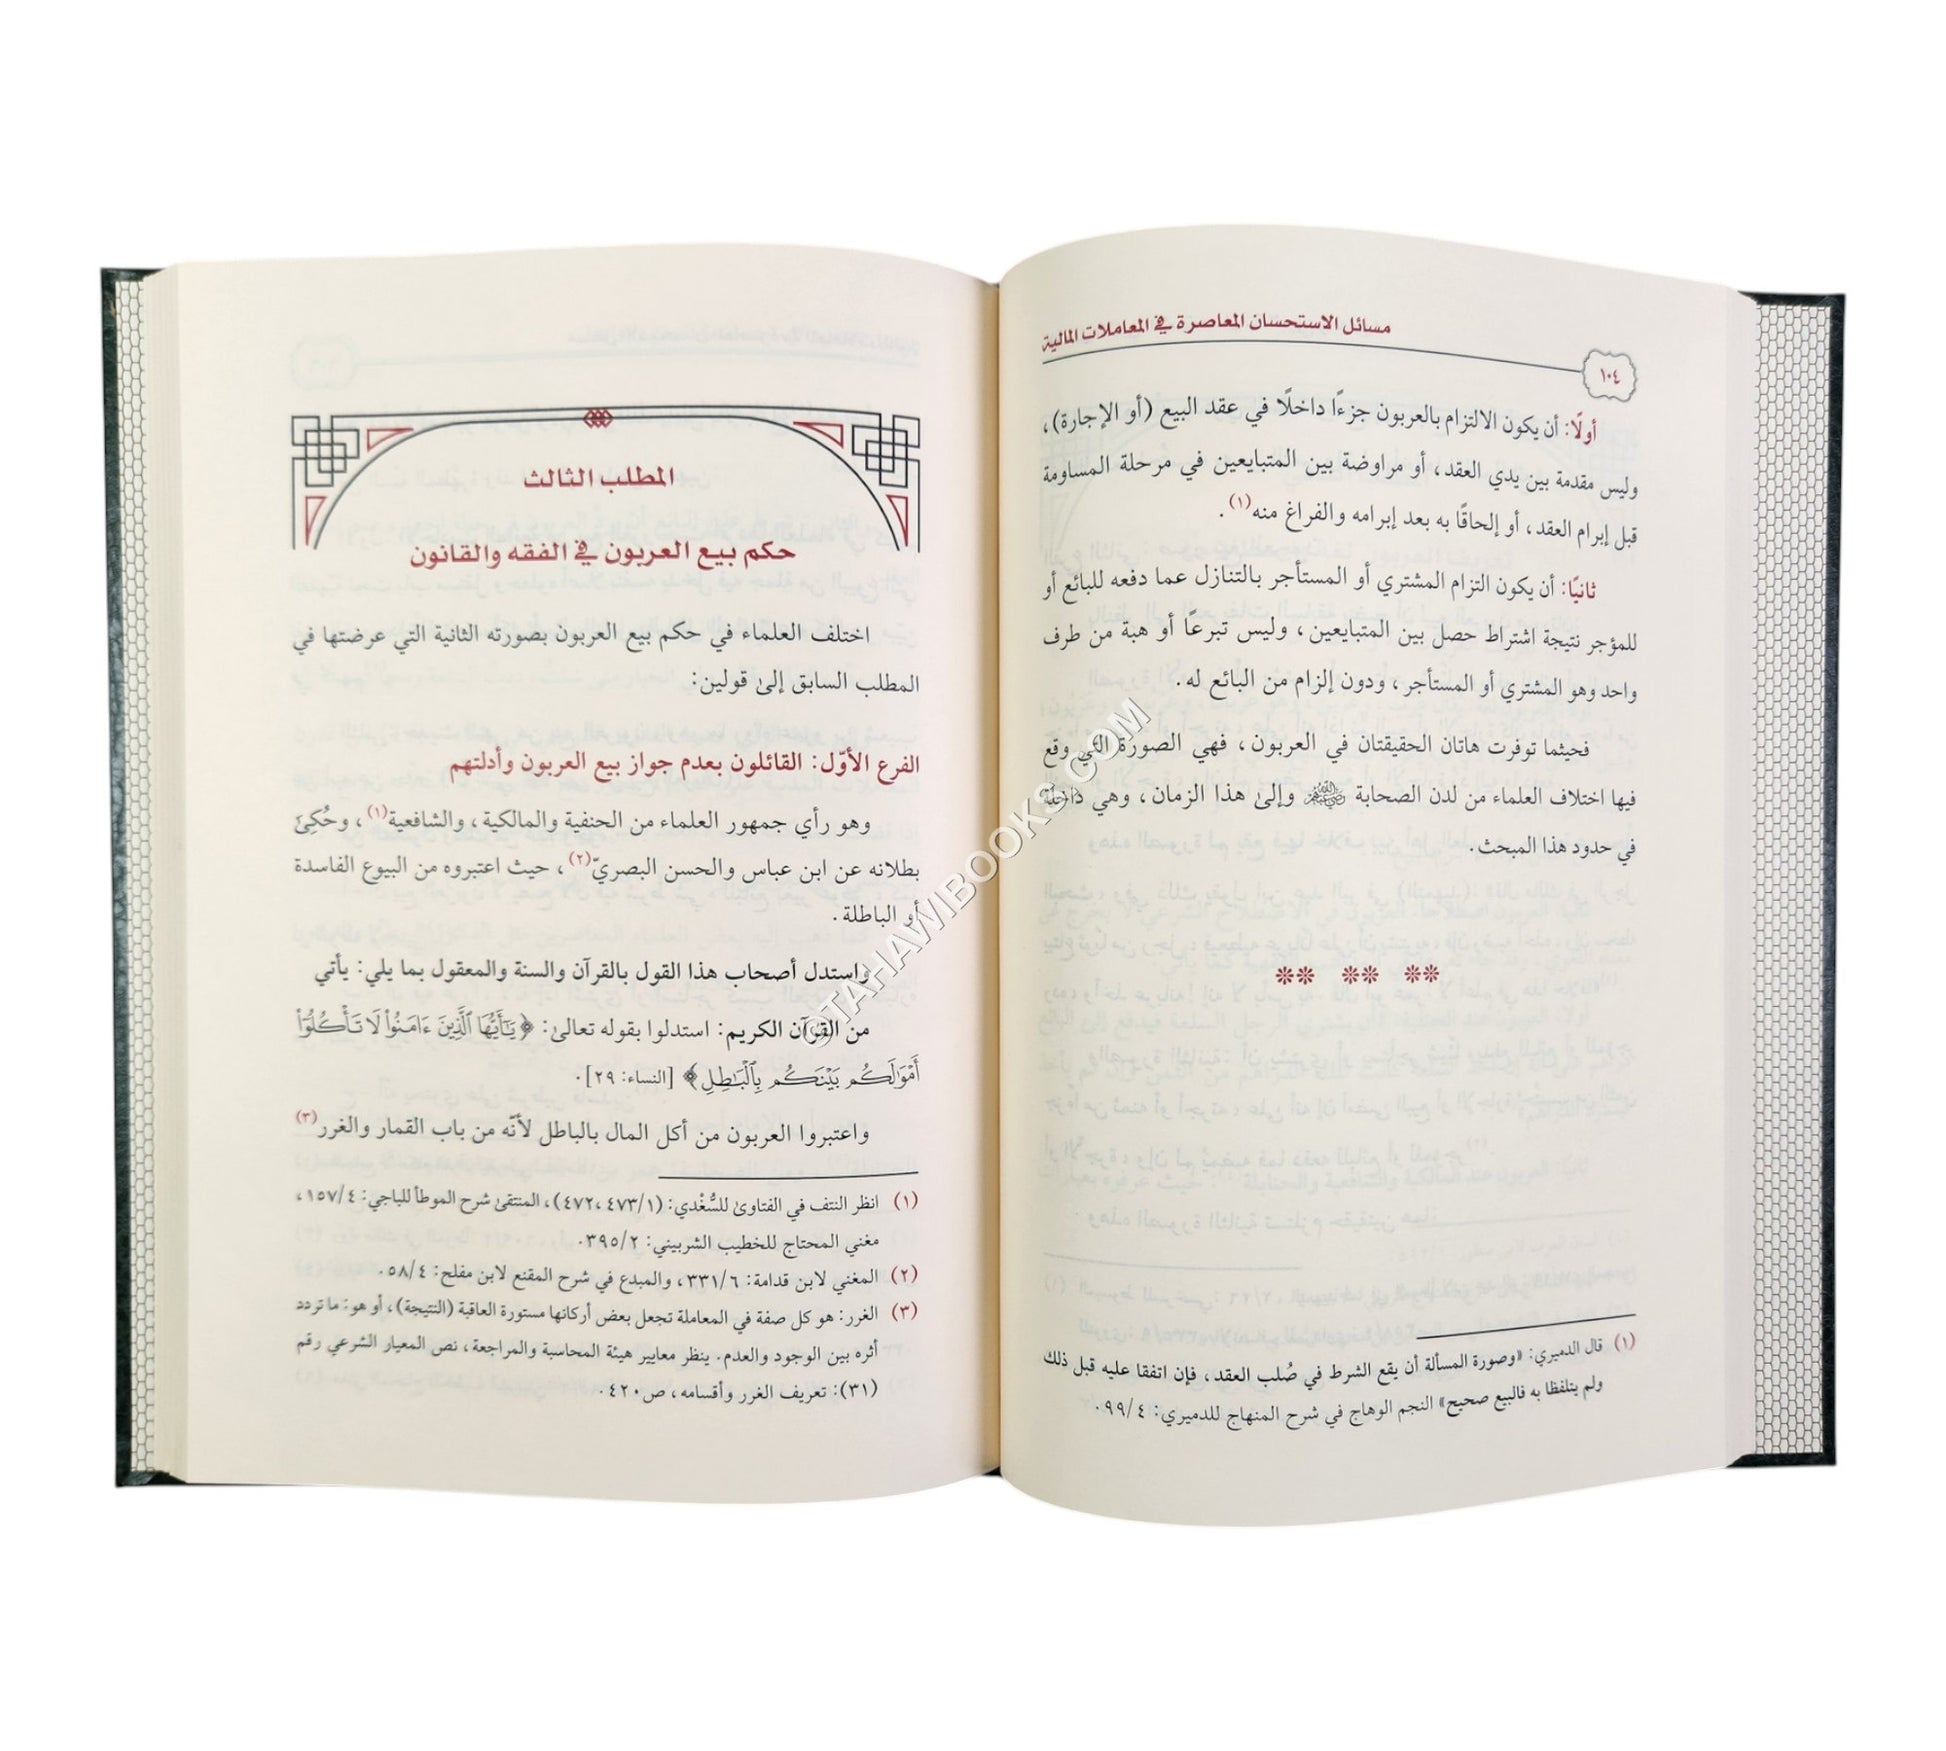 مسائل الاستحسان المعاصرة في المعاملات المالية
١٠٤
أولًا: أن يكون الالتزام بالعربون جزءًا داخلًا في عقد البيع (أو الإجارة)،
وليس مقدمة بين يدي العقد، أو مراوضة بين المتبايعين في مرحلة المساومة
قبل إبرام العقد، أو إلحاقًا به بعد إبرامه والفراغ منه(١).
ثانيًا: أن يكون التزام المشتري أو المستأجر بالتنازل عما دفعه للبائع أو
للمؤجر نتيجة اشتراط حصل بين المتبايعين، وليس تبرعًا أو هبة من طرف
واحد وهو المشتري أو المستأجر، ودون إلزام من البائع له.
فحيثما توفرت هاتان الحقيقتان في العربون، فهي الصورة التي وقع
فيها اختلاف العلماء من لدن الصحابة وإلىٰ هذا الزمان، وهي داخلة
في حدود هذا المبحث.
** ** **
(١) قال الدميري: «وصورة المسألة أن يقع الشرط في صُلب العقد، فإن اتفقا عليه قبل ذلك
ولم يتلفظا به فالبيع صحيح» النجم الوهاج في شرح المنهاج للدميري: ٩٩/٤.
المطلب الثالث
حكم بيع العربون في الفقه والقانون
اختلف العلماء في حكم بيع العربون بصورته الثانية التي عرضتها في
المطلب السابق إلىٰ قولين:
الفرع الأوّل: القائلون بعدم جواز بيع العربون وأدلتهم
وهو رأي جمهور العلماء من الحنفية والمالكية، والشافعية(١)، وحُكِيَ
بطلانه عن ابن عباس والحسن البصريّ(٢)، حيث اعتبروه من البيوع الفاسدة
أو الباطلة.
واستدل أصحاب هذا القول بالقرآن والسنة والمعقول بما يلي: يأتي
من القرآن الكريم: استدلوا بقوله تعالىٰ: ﴿يَٰٓأَيُّهَا ٱلَّذِينَ ءَامَنُوا۟ لَا تَأْكُلُوٓا۟
أَمْوَٰلَكُم بَيْنَكُم بِٱلْبَٰطِلِ﴾ [النساء: ٢٩].
واعتبروا العربون من أكل المال بالباطل لأنّه من باب القمار والغرر(٣)
(١) انظر النتف في الفتاوىٰ للسُّغْدي: (٤٧٣/١، ٤٧٢)، المنتقىٰ شرح الموطأ للباجي: ١٥٧/٤،
مغني المحتاج للخطيب الشربيني: ٣٩٥/٢.
(٢) المغني لابن قدامة: ٣٣١/٦، والمبدع في شرح المقنع لابن مفلح: ٥٨/٤.
(٣) الغرر: هو كل صفة في المعاملة تجعل بعض أركانها مستورة العاقبة (النتيجة)، أو هو: ما تردد
أثره بين الوجود والعدم. ينظر معايير هيئة المحاسبة والمراجعة، نص المعيار الشرعي رقم
(٣١): تعريف الغرر وأقسامه، ص٤٢٠.
©TAHAWIBOOKS.COM